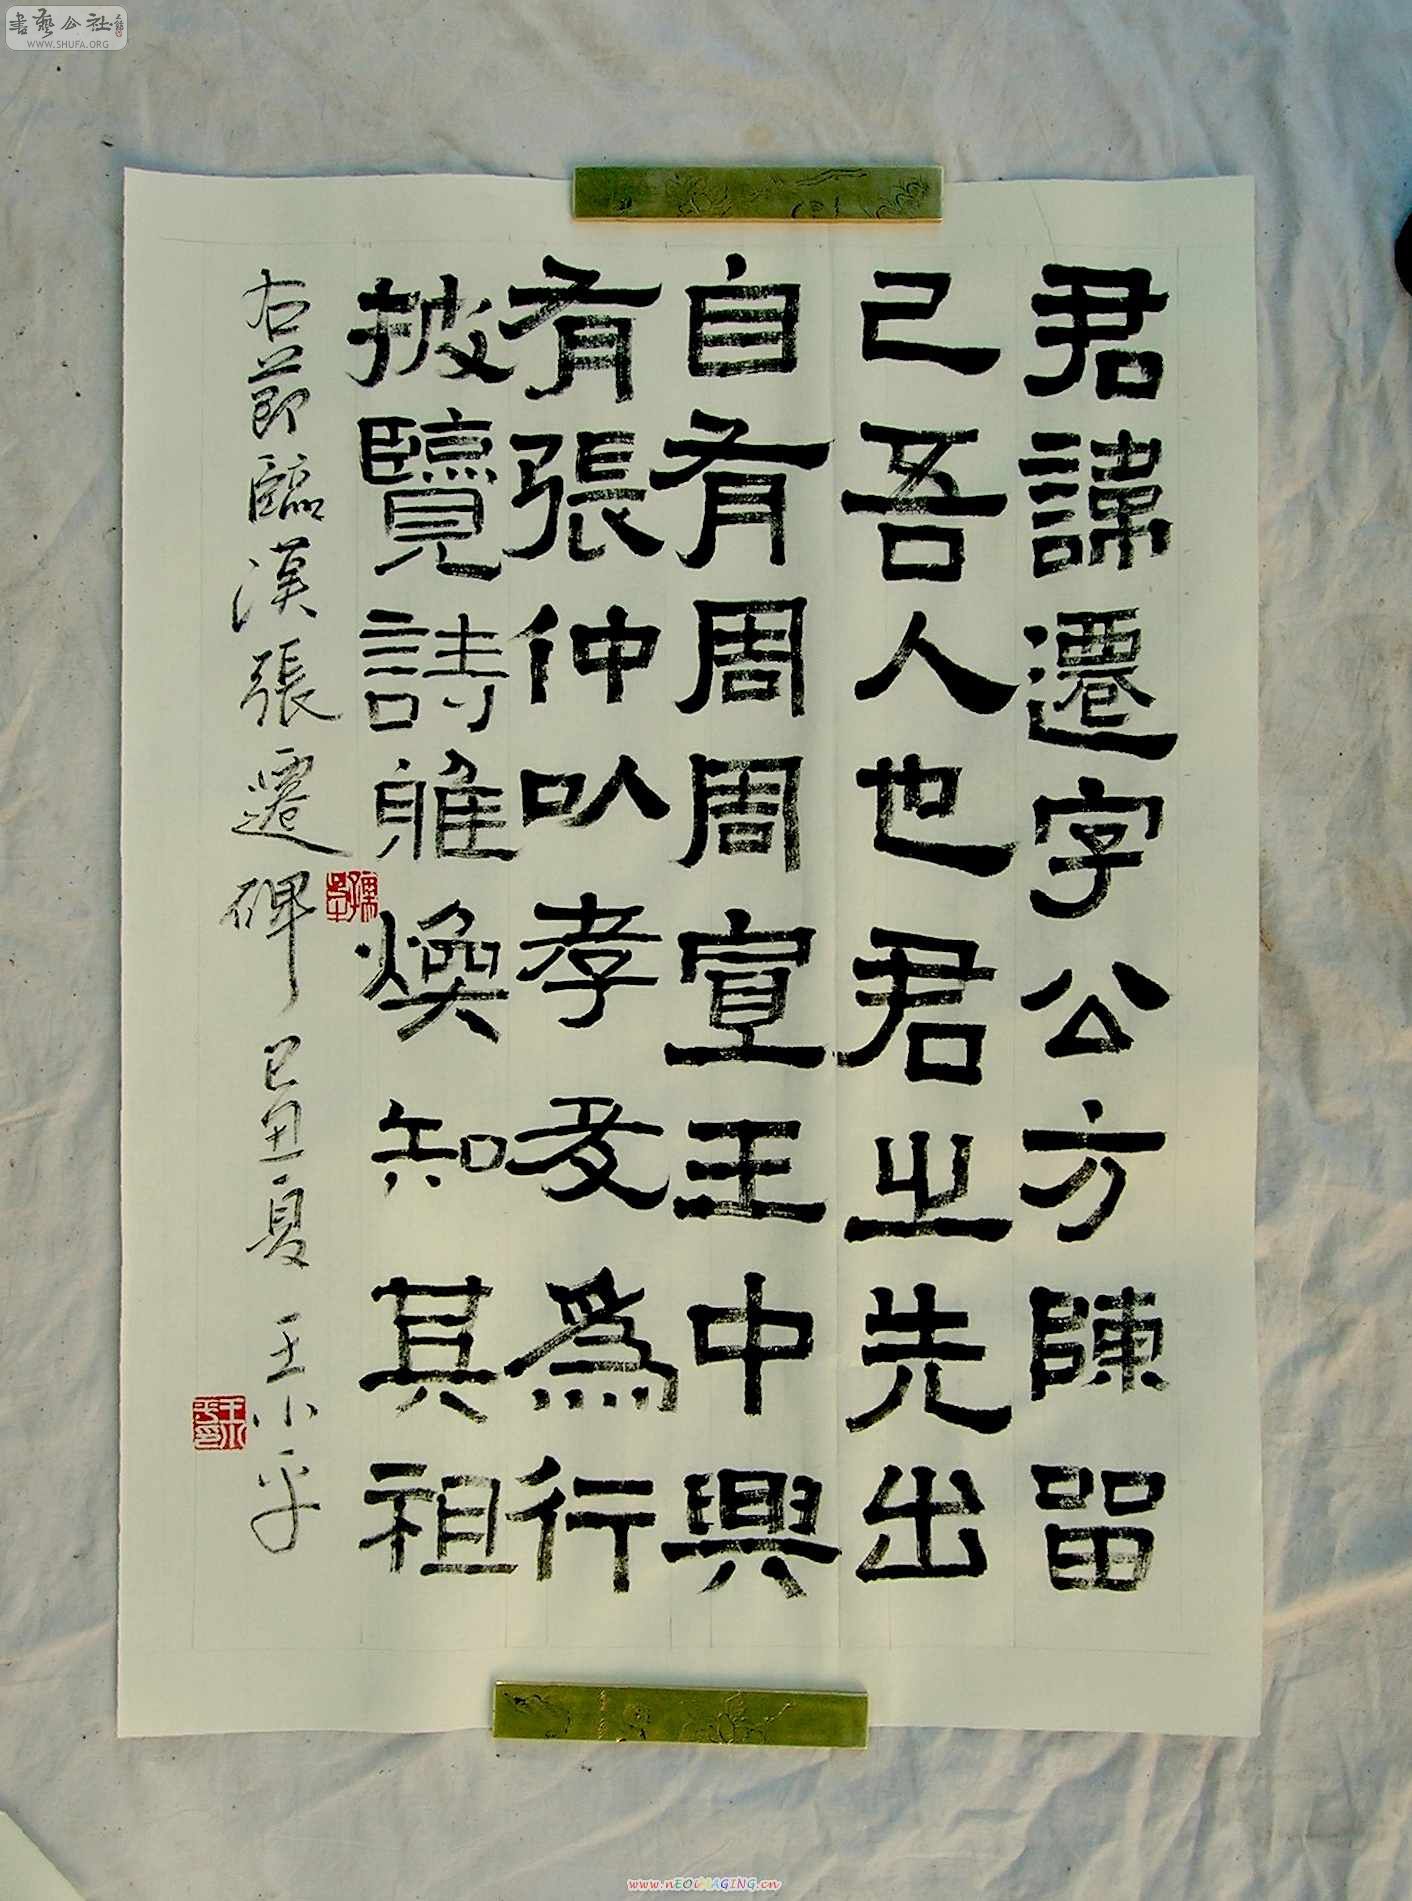 君諱遷字公方陳留
己吾人也君之先出
自有周周宣王中興
有張仲以孝友為行
披覽詩雅煥知其祖
右節臨漢張遷碑己丑夏王小平
書藝公社
WWW.SHUFA.ORG
www.nEOiMAGING.cn